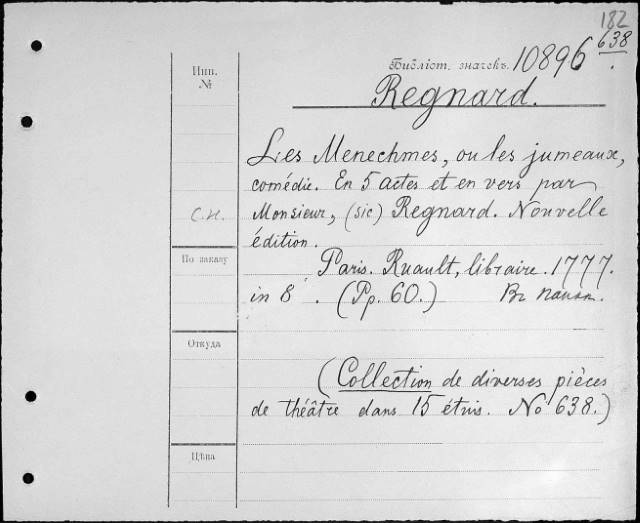 182
638
Библіот. значекъ. 10896
Инв.
№
Regnard.
Les Menechmes, ou les jumeaux,
comédie. En 5 actes et en vers par
Monsieur, (sic) Regnard. Nouvelle
édition.
По заказу
Paris. Ruault, libraire. 1777.
in 8°. (Pp. 60.)
Откуда
(Collection de diverses pièces
de théâtre dans 15 étuis. No 638.)
Цѣна